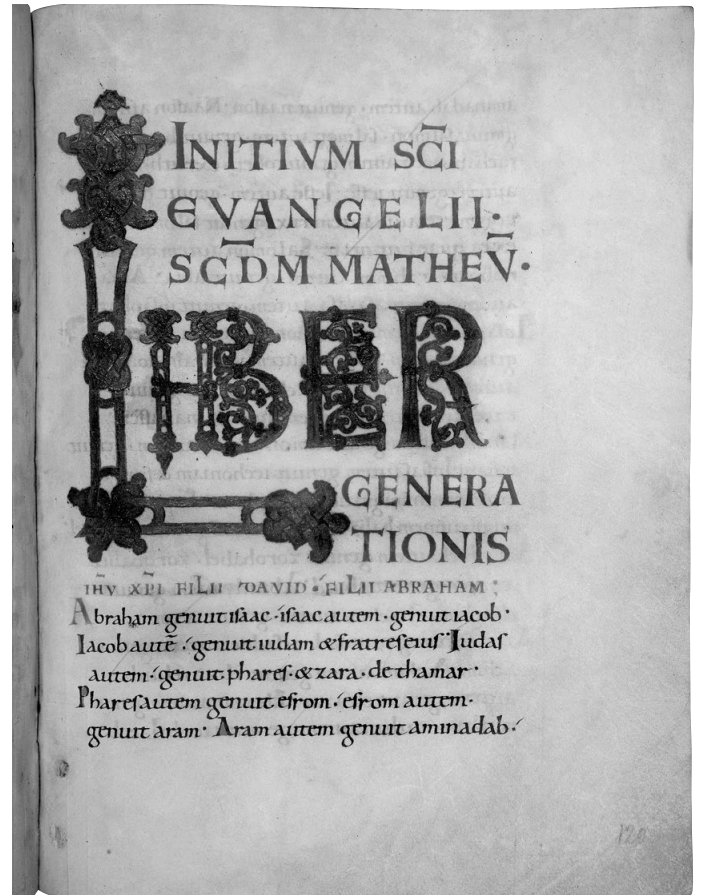 INITIVM SC̄I
EVANGELII·
SC̄DM MATHEV̄·
LIBER
GENERA
TIONIS
IHV̄ XP̄I FILII DAVID · FILII ABRAHAM :
Abraham genuit isaac · isaac autem · genuit iacob ·
Iacob autē · genuit iudam & fratres eius · Iudas
autem · genuit phares · & zara · de thamar ·
Phares autem genuit esrom · esrom autem ·
genuit aram · Aram autem genuit aminadab ·